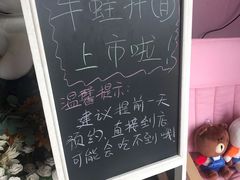 牛蛙拌面
上市啦！
温馨提示：
建议提前一天
预约，直接到店
可能会吃不到哦